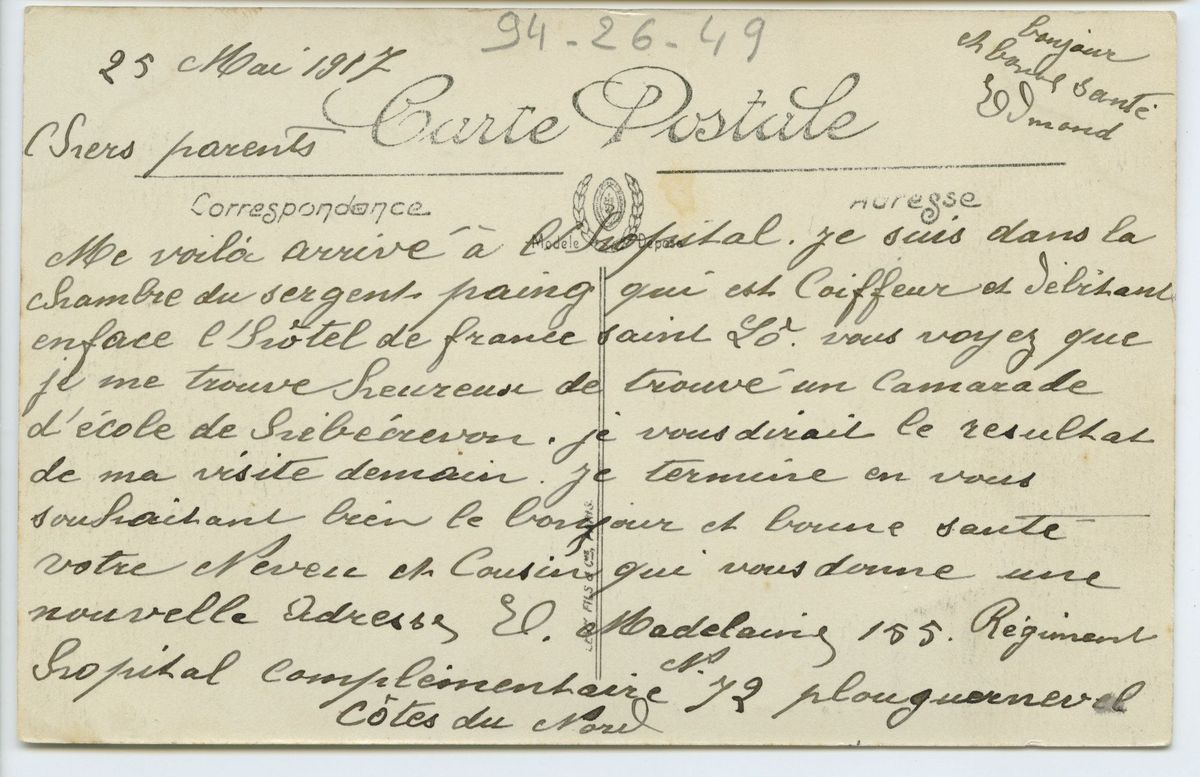 94-26-49
25 Mai 1917
bonjour
et bonne santé
Edmond
Carte Postale
Chers parents
Correspondance
Adresse
Modèle Déposé
Me voilà arrivé à l'hopital. je suis dans la
chambre du sergent paing qui est Coiffeur et débitant
enface l'hôtel de france saint Lô. vous voyez que
je me trouve heureux de trouvé un Camarade
d'école de hébécrevon. je vous dirait le resultat
de ma visite demain. je termine en vous
souhaitant bien le bonjour et bonne santé
votre Neveu et Cousin qui vous donne une
nouvelle adresse E. Madelaine 155. Régiment
hopital Complémentaire N° 72 plouguernevel
Côtes du Nord
FILS & Cie